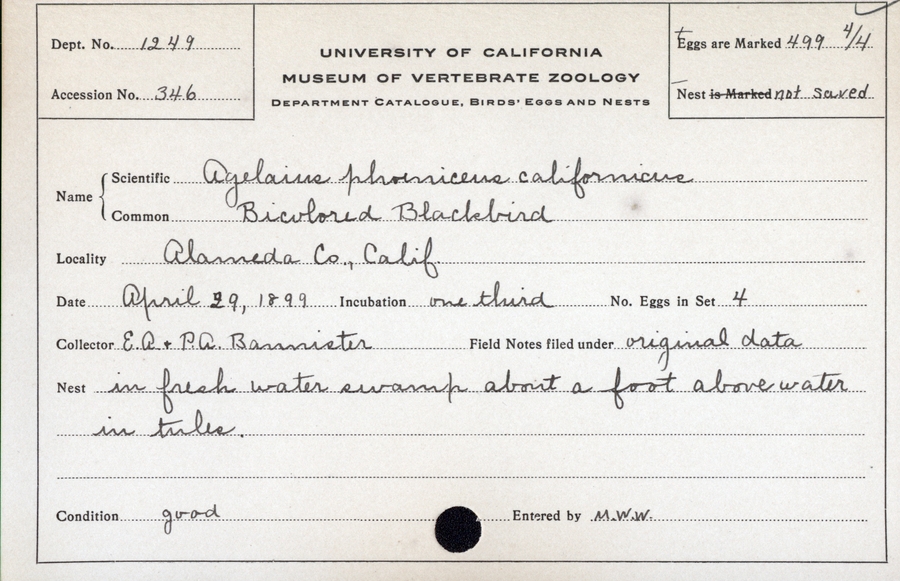 Dept. No. 1249
Accession No. 346
UNIVERSITY OF CALIFORNIA
MUSEUM OF VERTEBRATE ZOOLOGY
DEPARTMENT CATALOGUE, BIRDS' EGGS AND NESTS
Eggs are Marked 499 4/4
Nest is Marked not saved
Name
Scientific Agelaius phoeniceus californicus
Common Bicolored Blackbird
Locality Alameda Co., Calif.
Date April 29, 1899 Incubation one third No. Eggs in Set 4
Collector E.A. + P.A. Bannister Field Notes filed under original data
Nest in fresh water swamp about a foot above water
in tules.
Condition good Entered by M.W.W.